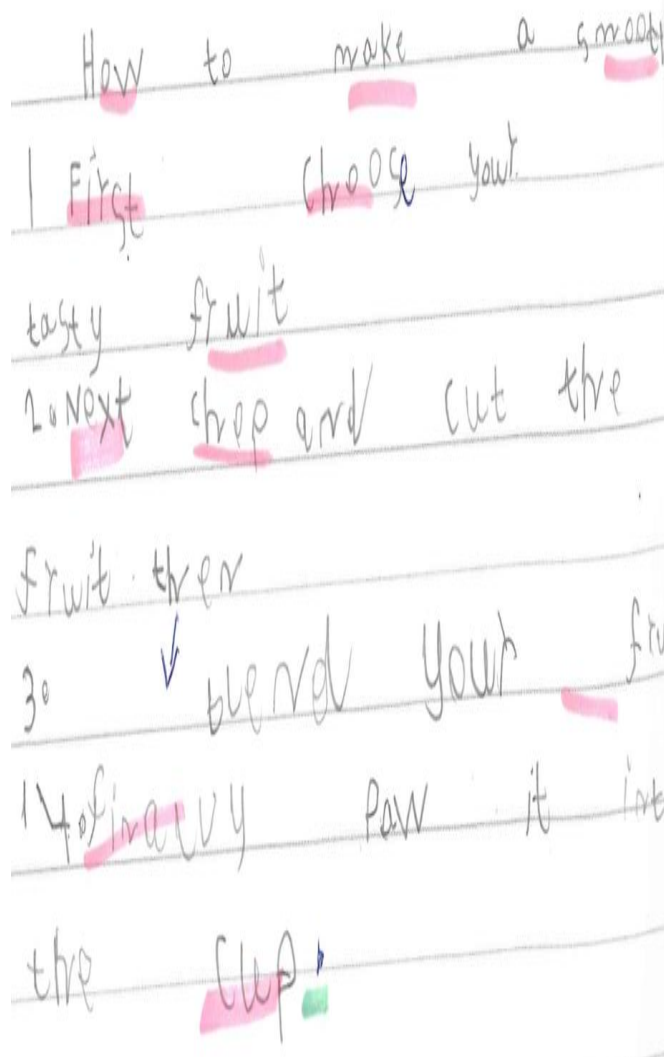 How to make a smooth
1 First choose your
tasty fruit
2. Next chop and cut the
fruit. then
3. blend your fru
4. finally Paw it int
the cup.